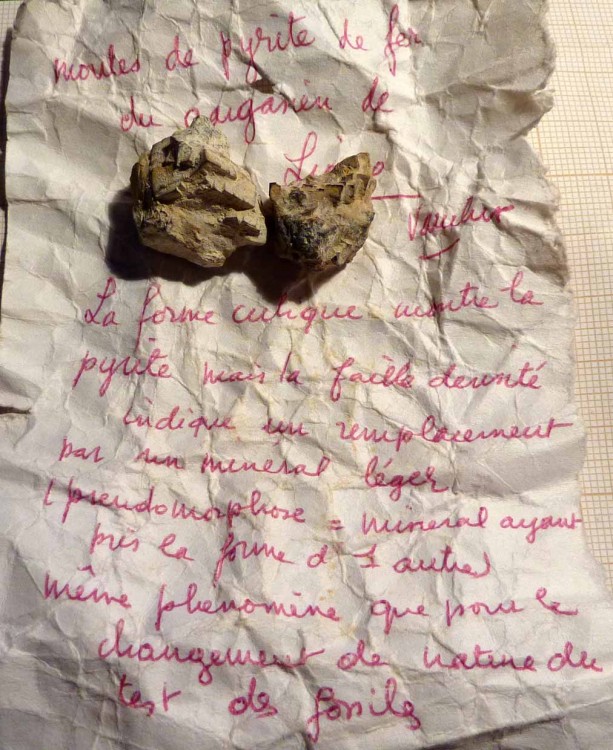 moules de pyrite de fer
du gargasien de
Vaucluse
La forme cubique montre la
pyrite mais la faible densité
indique un remplacement
par un minéral léger
(pseudomorphose = minéral ayant
pris la forme d 1 autre)
même phénomène que pour le
changement de nature du
test des fossiles